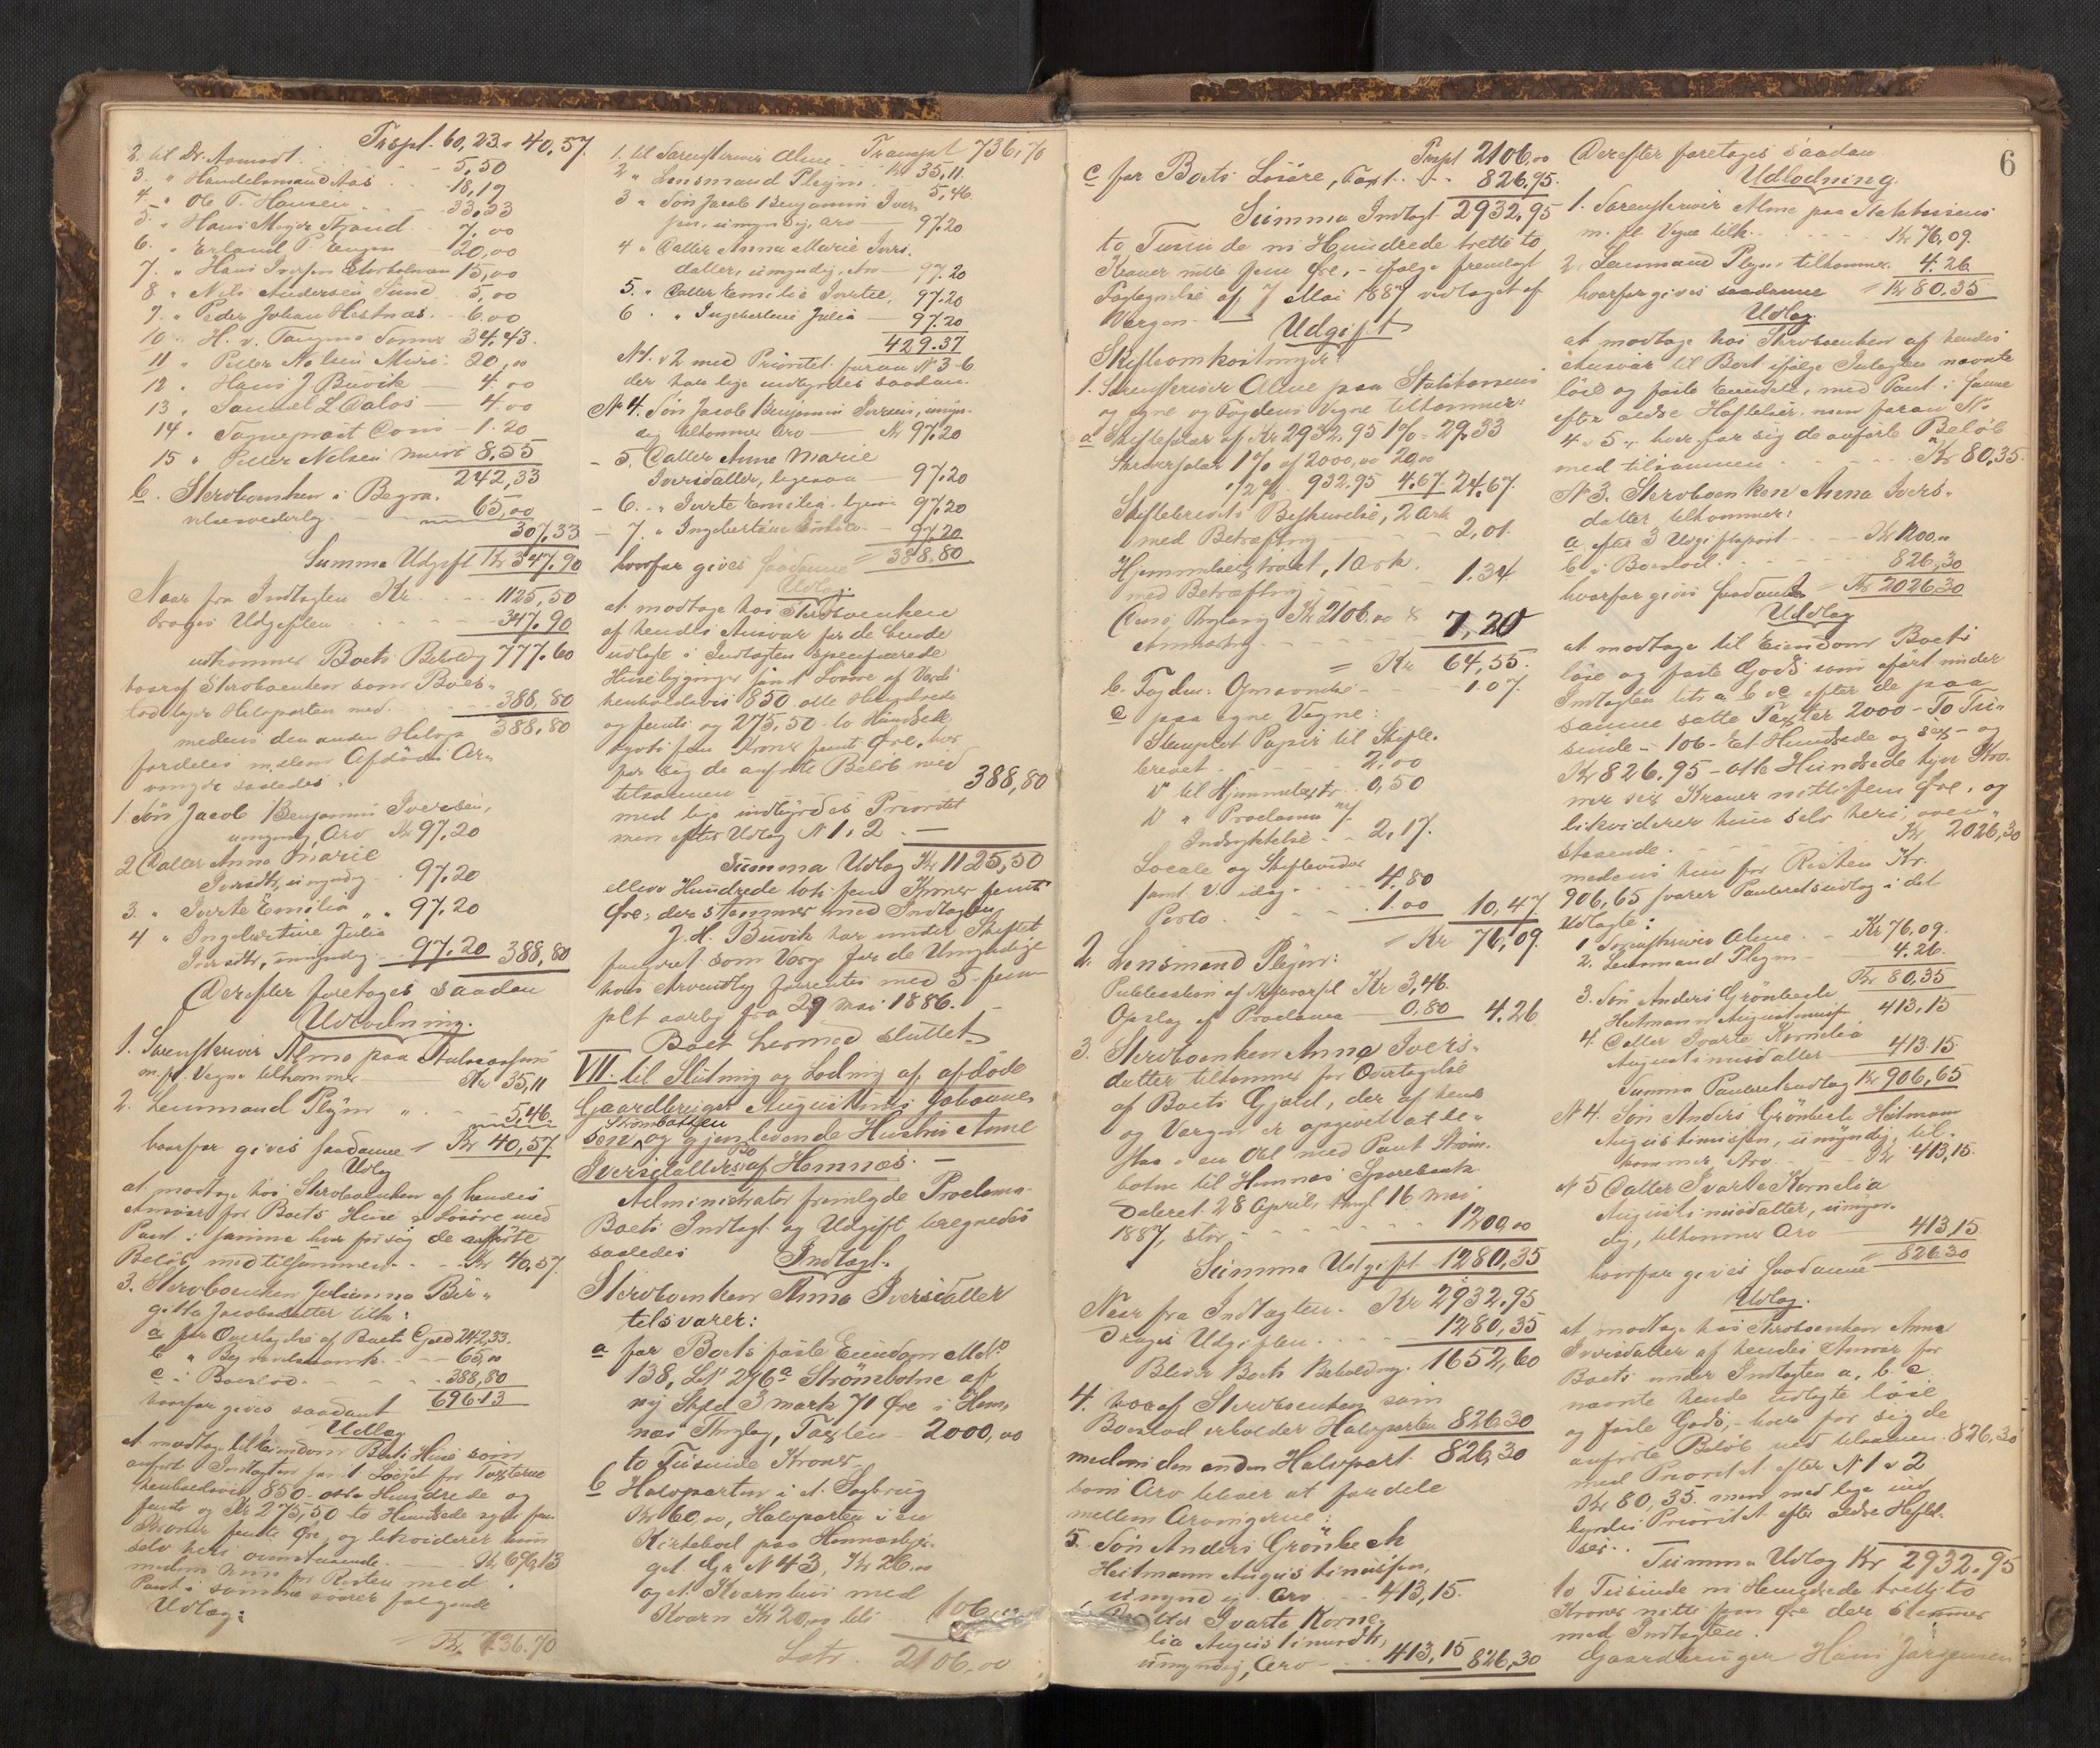 Trspt. 60,23 40,57.
2. til Dr. Aamodt 5,50
3. " Handelsmand Aas 18,19
4. " Ole P. Hansen 33,33
5. " Hans Meyer Strand 7,00
6. " Erland P. 20,00
7. " Hans Iversen Storholmen 15,00
8 " Nils Andersen Sund 5,00
9. " Peder Johan Hestnæs 6.00
10 " H. v. Tangens Sønner 34,43.
11 " Peter Nilsen Mures 20,00
12 " Hans J. Buvik 4,00
13 " Samuel L Dalos 4.00
14 " Sogneprest 1.20
15 " Peter Nilsen 8,55
242,33
b. Skrobænken i Begra-
velsesvederlag 65,00
307,33
Summa Udgift Kr 347,90
Naar fra Indtægten Kr. 1125,50
drages Udgiften 347.90
udkommer Boets Beholdg 777.60
hvoraf Skrobænken som Boes-
lod tager Halvparten med 388,80
medens den anden Halvp. 388,80
fordeles mellem Afdødes Ar-
vinger saaledes:
1. Søn Jacob Benjamin Iversen,
umyndig, Arv Kr 97,20
2 Datter Anna Marie
Iversdtr, umyndig 97.20
3. " Iverte Emilia " " 97,20
4 " Ingebertine Julia
Iversdtr, umyndig 97.20 388,80
Derefter foretages saadan
Udlodning.
1. Sorenskriver Alme paa Statskassens
m. fl. Vegne tilkommer Kr. 35,11
2. Lensmand Plejm " 5,46
hvorfor gives saadanne Kr 40,57
Udlæg
at modtage hos Skrobænken af hendes
Ansvar for Boets Huse & Løsøre med
Pant i samme hver for sig de anførte
Beløb med tilsammen Kr 40,57.
3. Skrobænken Julianna Bir-
gitta Jacobsdatter tilk:
a for Overtagelse af Boets Gjæld 242,33.
b " Begravelsesomk. 65,00
c i Boeslod 388,80
hvorfor gives saadant 696.13
Udlæg
at modtage til Eiendom Boets Huse som
anført Indtægten for & Løsøret for Taxterne
henholdsvis 850 otte Hundrede og
femti og Kr 275,50 to Hundrede sytti fem
Kroner femti Øre, og likviderer hun
selv heri ovenstaaende Kr 696,13
medens hun for Resten med
Pant i samme svarer følgende
Udlæg:
Kr. 736.70
Transpt 736,70
1. til Sorenskriver Alme Kr 35,11.
2 " Lensmand Plejm 5,46.
3 " Søn Jacob Benjamin Iver-
sen, umyndig, Arv 97.20
4 " Datter Anna Marie Ivers-
datter, umyndig, Arv 97.20
5. " Datter Emilie Ivertee, 97.20
6 " " Ingebertine Julia 97.20
429.37
N 1. & 2 med Prioritet foran N 3-6
der har lige indbyrdes saadan.
N 4. Søn Jacob Benjamin Iversen, umyn-
dig tilkommer Arv Kr 97,20
- 5. Datter Anne Marie
Iversdatter, ligesaa 97.20
- 6. " Iverte Emilia, ligesaa 97,20
- 7. " Ingebertine Julia 97.20
hvorfor gives saadanne 388,80
Udlæg:
at modtage hos Skrobænken
af hendes Ansvar for de hende
udlagte i Indtægten specificerede
Husebygninger samt Løsøre af Værdi
henholdsvis 850 otte Hundrede
og femti og 275,50 to Hundrede
sytti fem Kroner femti Øre, hver
for sig de anførte Beløb med
tilsammen 388,80
med lige indbyrdes Prioritet
men efter Udlæg N 1 & 2.
Summa Udlæg Kr 1125,50
elleve Hundrede toti fem Kroner femti
Øre, der stemmer med Indtægten.
J. H. Buvik har under Skiftet
fungeret som Værge for de Umyndige
hvis Arveudlæg forrentes med 5 fem
pCt aarlig fra 29 Mai 1886.
Boet hermed sluttet.
VII. til Slutning og Lodning af afdøde
Gaardbruger Augustinus Johanne-
sen Strømbotten og gjenlevende Hustru Anne
Iversdatters Bo af Hemnæs.
Administrator fremlagde Proclama.
Boets Indtægt og Udgift beregnedes
saaledes
Indtægt.
Skrobænken Anna Iversdatter
tilsvarer:
a for Boets faste Eiendom Mat.
138, Løb 276a Strømbotne af
ny Skyld 3 mark 71 Øre i Hem-
næs Thinglag, Taxten 2000,00
to Tusinde Kroner
b Halvparten i et Sagbrug
Kr 60,00, Halvparten i en
Kirkebod paa Hemnesber-
get Gr N 43, Kr 26,00
og et Kvernhus med
Kværn Kr 20,00 tils 106,00
Latr. 2106,00
6
Trspt 2106,00
c for Boets Løsøre, Taxt 826,95.
Summa Indtægt 2932,95
to Tusinde ni Hundrede tretti to
Kroner nitti fem Øre, - ifølge fremlagt
Taxtegnelse af 7 Mai 1887 vedtaget af
Værgen.
Udgift
Skifteomkostninger:
1. Sorenskriver Alme paa Statskassens
og egne og Fogdens Vegne tilkommer:
a Skifteafgift af Kr 2932,95 1% = 29,33
Skriversalær 1% af 2000,00 20,00
1/2 % - 932,95 4.67. 24,67.
Skiftebrevets Beskrivelse, 2 Ark
med Betræftning 2,01.
Hjemmelsextract, 1 Ark.
med Betræftning 1.34
Dens Thinglysing Kr 2106,00 &
Anmærkng. 7,20
= Kr 64,55.
b. Fogden: 1.07.
c paa egne Vegne:
Stemplet Papir til Skifte-
brevet 2,00
do til Hjemmelsextr. 0,50
do " Proclama m/
Indrykkelse 2,17.
Locale og Skiftevidner
samt V. idag 4,80
Porto 1.00 10,47.
Kr 76,09.
2. Lensmand Plejm:
Publication af Kr 3,46
Opslag af Proclama 0.80 4.26
3. Skrobænken Anna Ivers-
datter tilkommer for Overtagelse
af Boets Gjæld, der af hende
og Værgen er opgivet at be-
staa i en Obl. med Pant Strøm-
botne til Hemnes Sparebank
dateret 28 April, tingl 16 Mai
1887, stor 1200,00
Summa Udgift 1280,35
Naar fra Indtægten Kr 2932.95
drages Udgiften 1280,35
Bliver Boets Beholdng. 1652,60
4. hvoraf Skrobænken som
Boeslod erholder Halvparten 826.30
medens den anden Halvpart 826,30
som Arv bliver at fordele
mellem Arvingerne:
5. Søn Anders Grønbech
Heitmann Augustinussen,
umyndig. Arv 413,15.
Datter Ivarta Korne-
lia Augustinusdtr,
umyndig, Arv 413,15 826,30
Derefter foretages saadan
Udlodning.
1. Sorenskriver Alme paa Statskassens
m. fl. Vegne tilk. Kr 76,09.
2. Lensmand Plejm tilkommer 4.26
hvorfor gives saadanne Kr 80.35
Udlæg.
at modtage hos Skrobænken af hendes
Ansvar til Boet ifølge Indtægten nævnte
løse og faste Eiendele, med Pant i samme
efter ældre Heftelser, men foran No
4 & 5, hver for sig de anførte Beløb
med tilsammen Kr 80,35.
N 3. Skrobænken Anna Ivers-
datter tilkommer:
a efter 3 Udgiftspost Kr 1200,00
b i Boeslod 826,30
hvorfor gives saadant Kr 2026,30
Udlæg
at modtage til Eiendom Boets
løse og faste Gods som anført under
Indtægten litr. a b & c efter de paa
samme satte Taxter 2000 - To Tu-
sinde - 106 - Et Hundrede og sex - og
Kr 826.95 - otte Hundrede tyve Kro-
ner sex Kroner nittifem Øre, og
likviderer hun selv heri oven-
staaende Kr 2026,30
medens hun for Resten Kr.
906,65 svarer Panteretsudlæg i det
Udlagte:
1 Sorenskriver Alme Kr 76,09.
2. Lensmand Plejm 4.26.
Kr 80,35
3. Søn Anders Grønbech
Heitmann Augustinussen 413,15
4. Datter Ivarte Kornelia
Augustinusdatter 413.15
Summa Panteretsudlæg Kr 906,65
N 4. Søn Anders Grønbech Heitmann
Augustinussen, umyndig, til-
kommer Arv Kr 413,15.
N 5 Datter Ivarta Kornelia
Augustinusdatter, umyn-
dig, tilkommer Arv 413,15
hvorfor gives saadanne 826.30
Udlæg.
at modtage hos Skrobænken Anna
Iversdatter af hendes Ansvar for
Boets under Indtægten a, b. c
nævnte hende udlagte løse
og faste Gods, hver for sig de
anførte Beløb med tilsammen 826,30
med Prioritet efter N 1 & 2
Kr 80,35 men med lige ind-
byrdes Prioritet efter ældre Heftel-
ser.
Summa Udlæg Kr 2932.95
to Tusinde ni Hundrede tretti to
Kroner nitti fem Øre der stemmer
med Indtægten.
Gaardbruger Hans Jørgensen